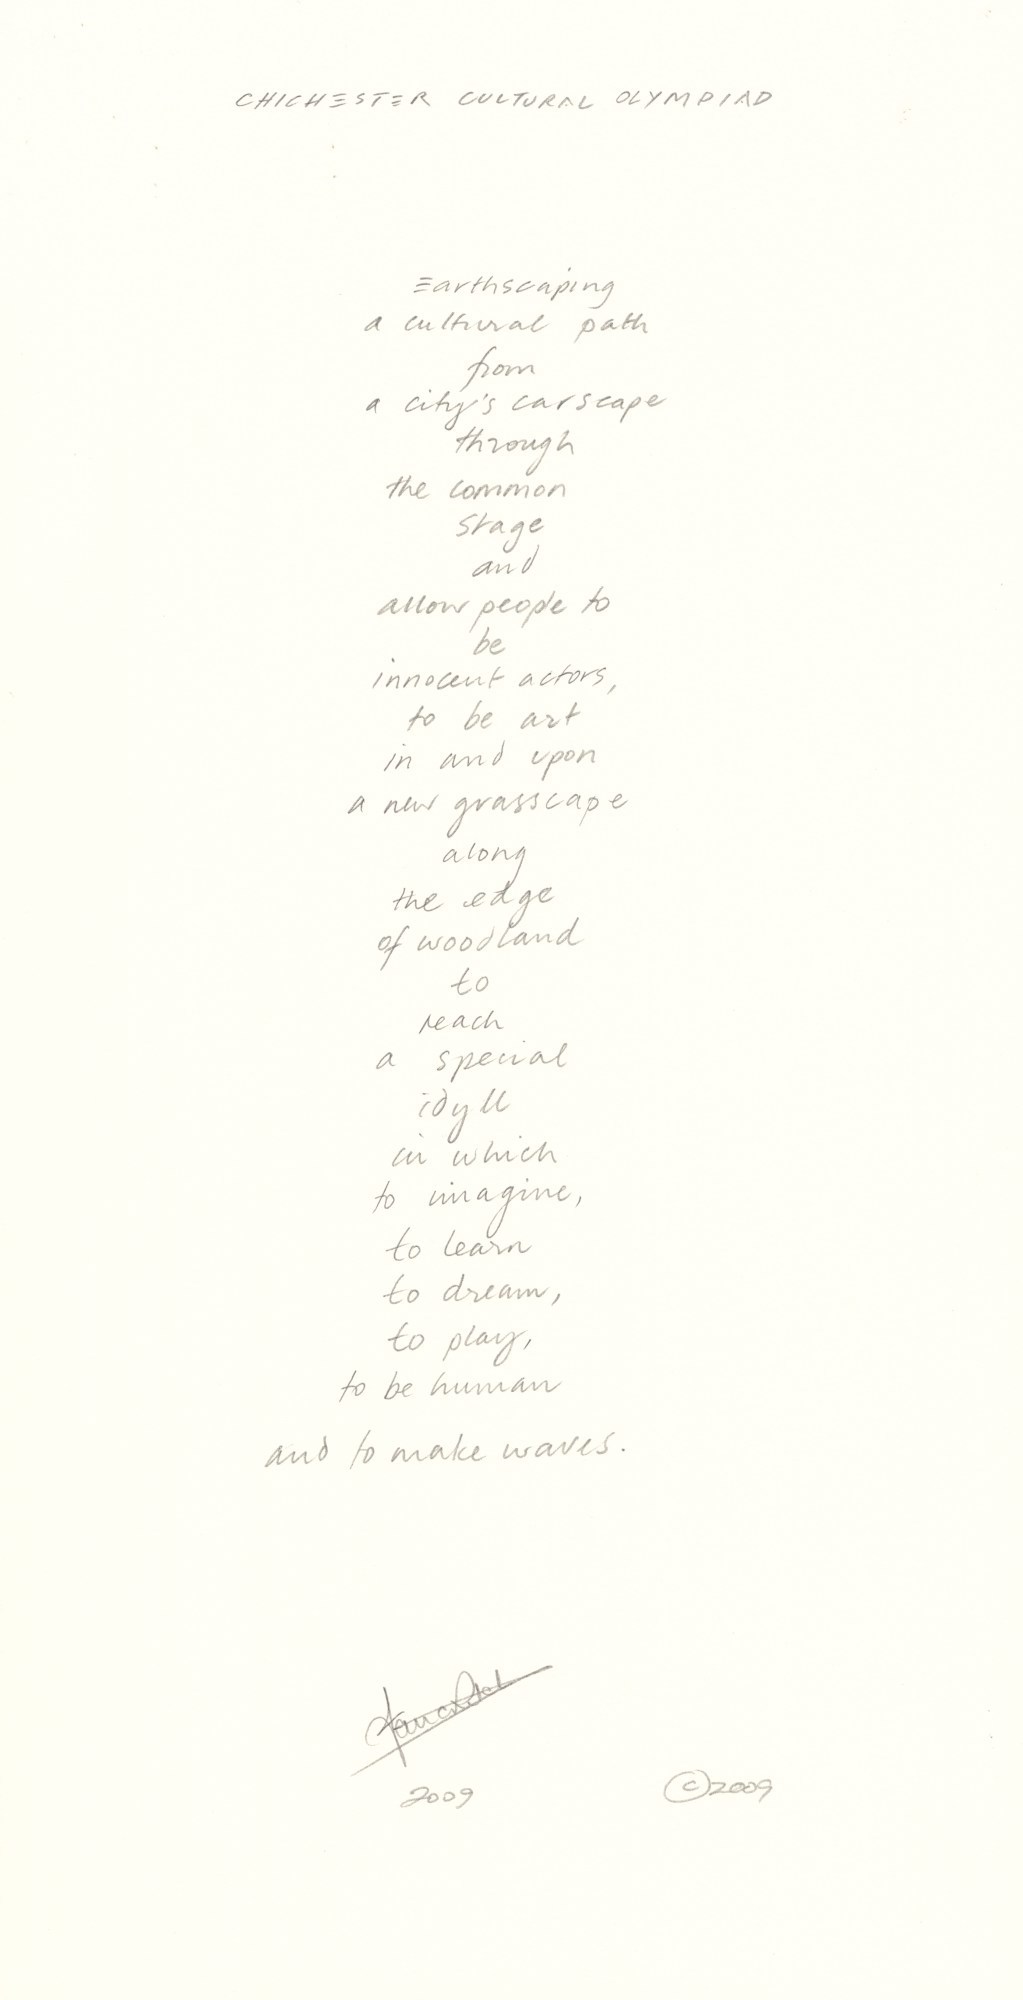 CHICHESTER CULTURAL OLYMPIAD
Earthscaping
a cultural path
from
a city's carscape
through
the common
stage
and
allow people to
be
innocent actors,
to be art
in and upon
a new grasscape
along
the edge
of woodland
to
reach
a special
idyll
in which
to imagine,
to learn
to dream,
to play,
to be human
and to make waves.
2009
©2009